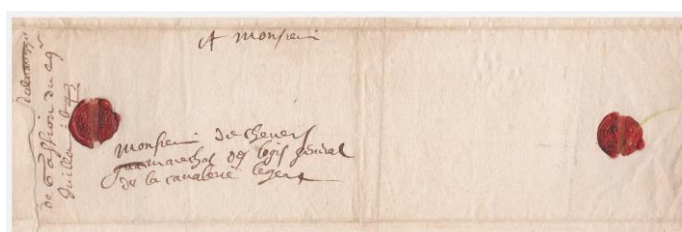 A Monsieur
Monsieur de chevers
marechal des logis general
de la cavalerie legere
de Gassion du
Juillet 1643